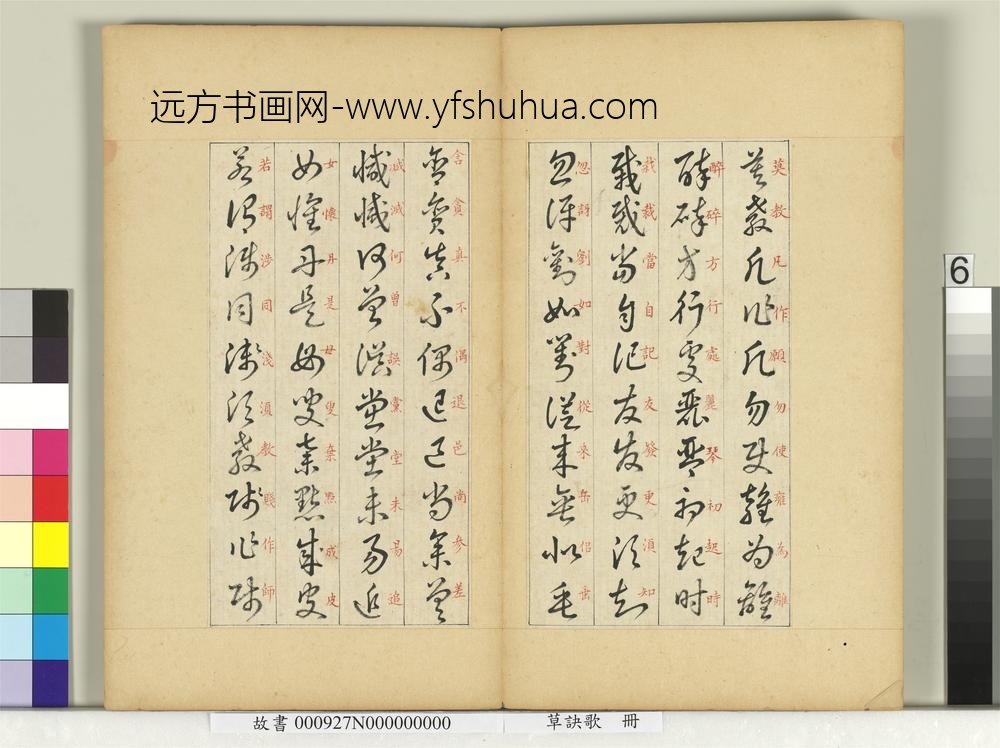 远方书画网-www.yfshuhua.com
莫教凡作願勿使雍為離
醉碎方行處麗琴初起時
栽裁當自記友發更須知
忽訝劉如對從來缶侣垂
含貪真不偶退邑尚參差
減滅何曾誤黨堂未易追
女懷丹是母叟棄點成皮
若謂涉同淺須教賤作師
6
故書 000927N000000000
草訣歌 冊